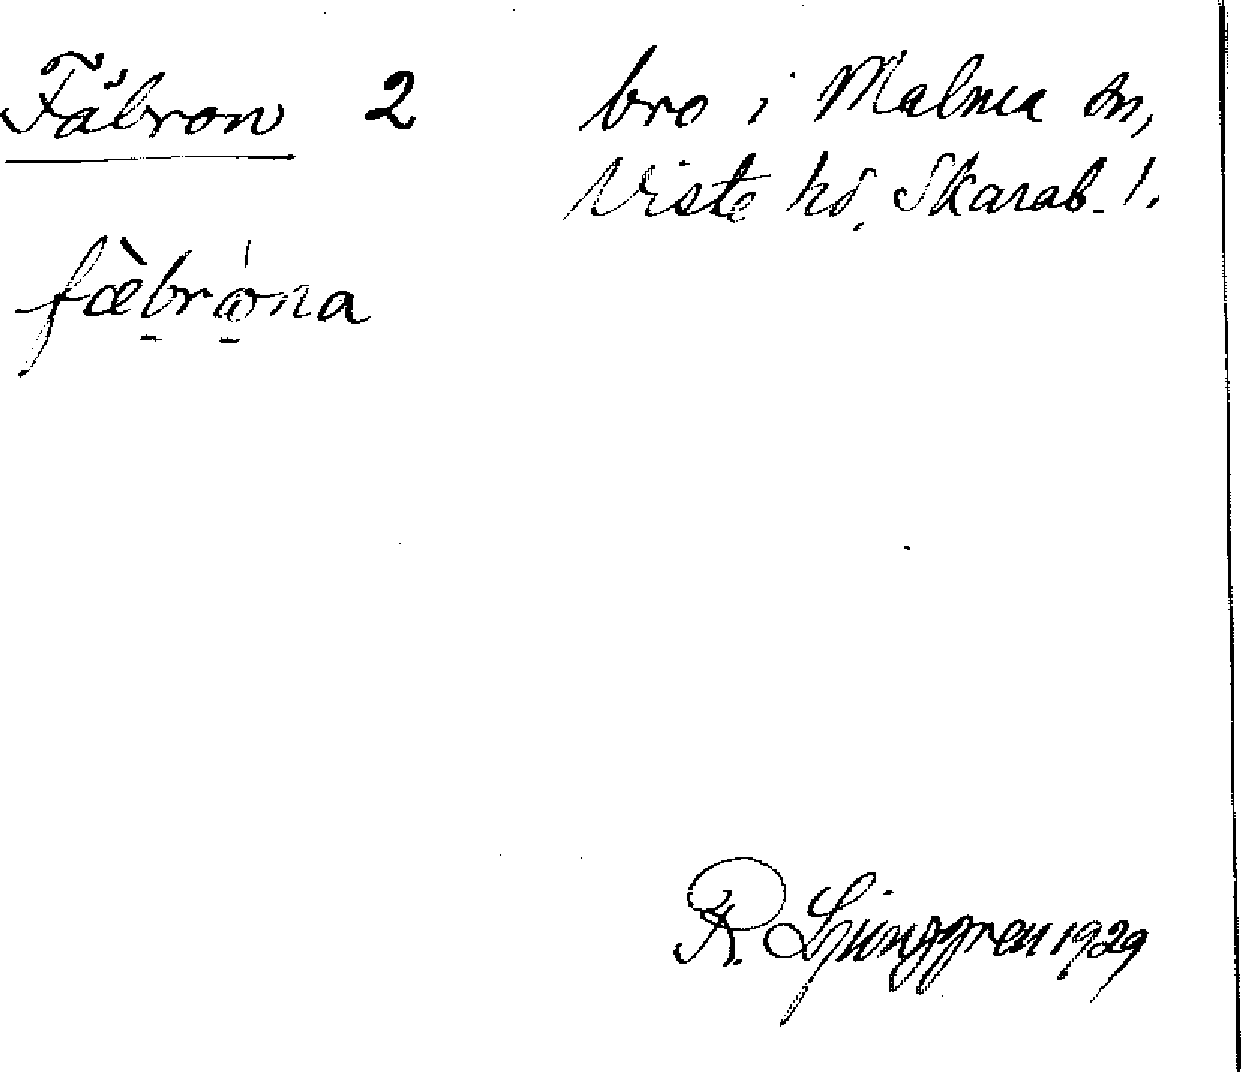 Fäbron 2 bro i Malma sn,
Viste hd. Skarab. l.
fæ̀brǫ́na
R. Ljunggren 1929